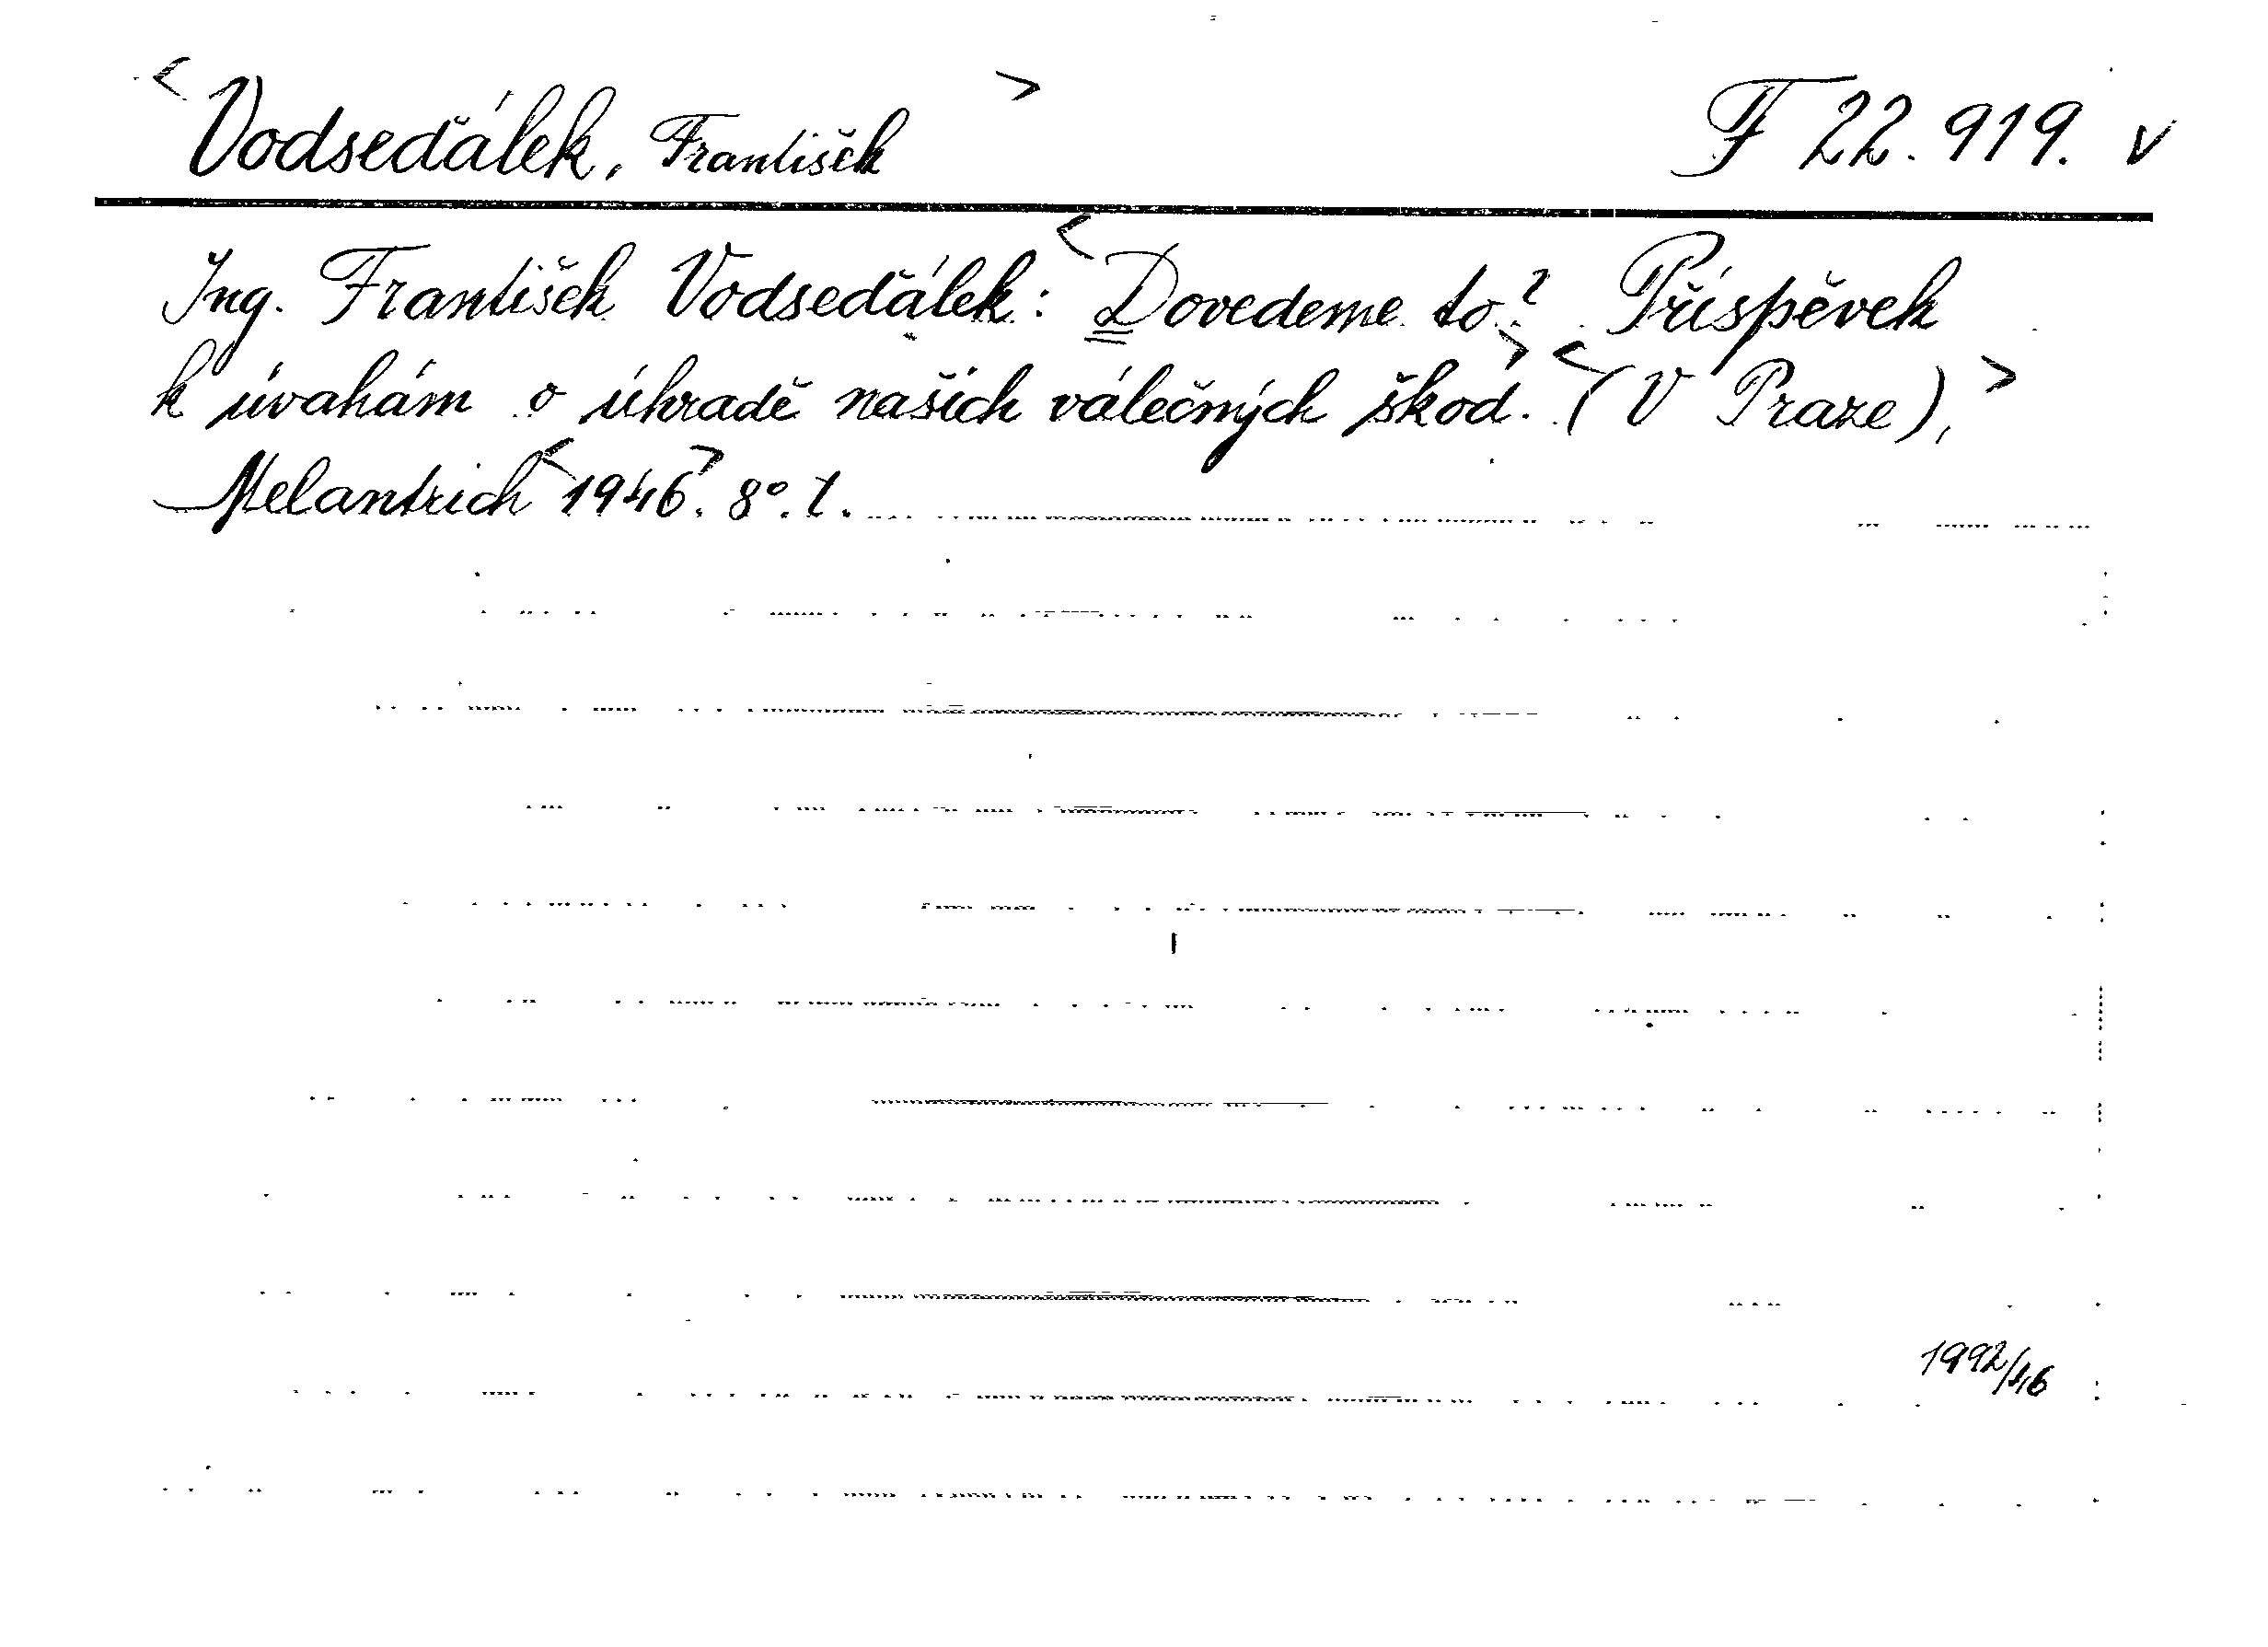 <Vodseďálek, František> F 22.919. v
Ing. František Vodseďálek: <Dovedeme to?> Příspěvek
k úvahám o úhradě našich válečných škod. <(V Praze),>
Melantrich <1946>. 8°. l.
1992/46